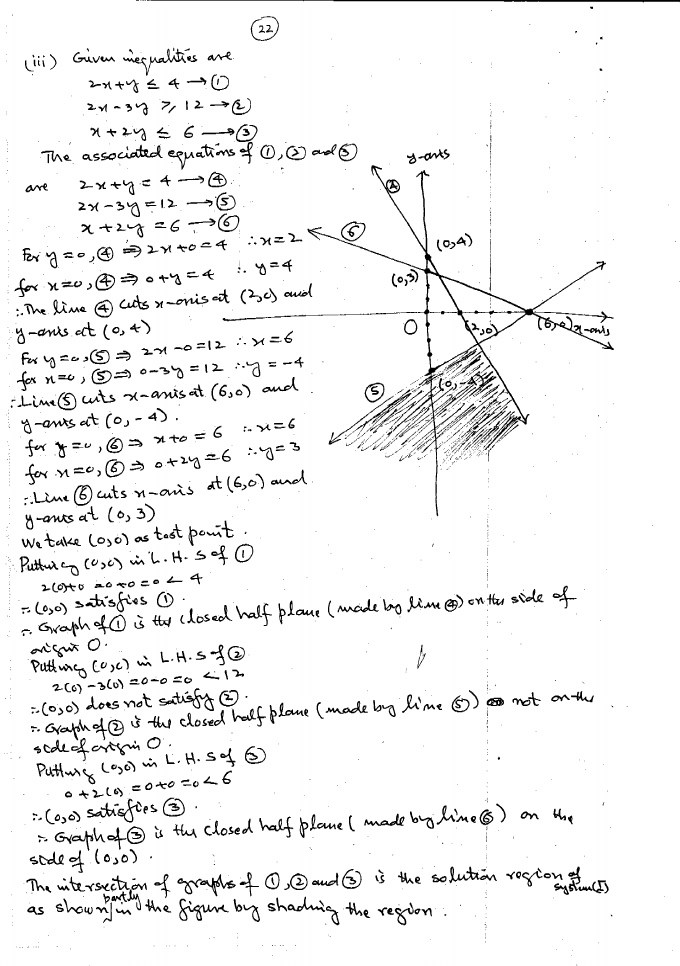 22
(iii) Given inequalities are
2x+y ≤ 4 → ①
2x-3y ≥ 12 → ②
x+2y ≤ 6 → ③
The associated equations of ①, ② and ③
are 2x+y = 4 → ④
2x-3y = 12 → ⑤
x+2y = 6 → ⑥
For y=0, ④ ⇒ 2x+0=4 ∴ x=2
for x=0, ④ ⇒ 0+y=4 ∴ y=4
∴ The line ④ cuts x-axis at (2,0) and
y-axis at (0,4)
For y=0, ⑤ ⇒ 2x-0=12 ∴ x=6
for x=0, ⑤ ⇒ 0-3y=12 ∴ y=-4
∴ Line ⑤ cuts x-axis at (6,0) and
y-axis at (0,-4).
for y=0, ⑥ ⇒ x+0=6 ∴ x=6
for x=0, ⑥ ⇒ 0+2y=6 ∴ y=3
∴ Line ⑥ cuts x-axis at (6,0) and
y-axis at (0,3)
We take (0,0) as test point.
Putting (0,0) in L.H.S of ①
2(0)+0 =0+0=0 < 4
∴ (0,0) satisfies ①.
∴ Graph of ① is the closed half plane (made by line ④) on the side of
origin O.
Putting (0,0) in L.H.S of ②
2(0)-3(0)=0-0=0 < 12
∴ (0,0) does not satisfy ②.
∴ Graph of ② is the closed half plane (made by line ⑤) not on the
side of origin O.
Putting (0,0) in L.H.S of ③
0+2(0)=0+0=0<6
∴ (0,0) satisfies ③.
∴ Graph of ③ is the closed half plane (made by line ⑥) on the
side of (0,0).
The intersection of graphs of ①, ② and ③ is the solution region of system(I)
as shown partly in the figure by shading the region.
y-axis
④
⑥
(0,4)
(0,3)
O
(2,0)
(6,0)
x-axis
⑤
(0,-4)